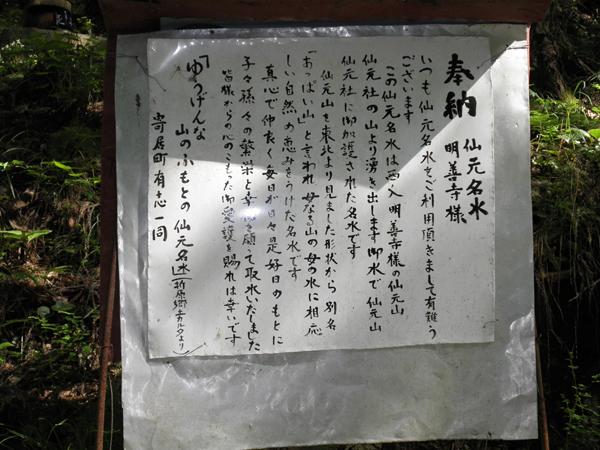 奉納 仙元名水
明善寺様
いつも仙元名水をご利用頂きまして有難う
ございます
この仙元名水は西入明善寺様の仙元山
仙元社の山より湧き出します御水で仙元山
仙元社に御加護された名水です
仙元山を東北より見ました形状から別名
「おっぱい山」と言われ母なる山の母の水に相応
しい自然の恵みをうけた名水です
真心で仲良く毎日が日々是好日のもとに
子々孫々の繁栄と幸福を願って取水いたしました
皆様からの心のこもった御愛護を賜れば幸いです
「ゆうげんな
山のふもとの 仙元名水」(折原郷土カルタより)
寄居町有志一同